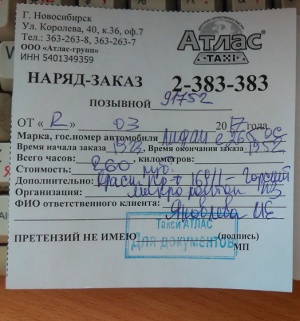 г. Новосибирск
Ул. Королева, 40, к.36, оф.7
Тел.: 363-263-8, 363-263-7
ООО «Атлас-групп»
ИНН 5401349359
Атлас
-TAXI-
НАРЯД-ЗАКАЗ 2-383-383
ПОЗЫВНОЙ 91752
ОТ « 12 » 03 2017 года
Марка, гос.номер автомобиля Лифан с 265 ос
Время начала заказа Время окончания заказа 1952
Всего часов: , километров:
Стоимость: 260 руб
Дополнительно: Красн пр-т 160/1 - горский
Организация: микрорайон
ФИО ответственного клиента: Яковлева
ПРЕТЕНЗИЙ НЕ ИМЕЮ (подпись)
МП
Такси АТЛАС
Для документов